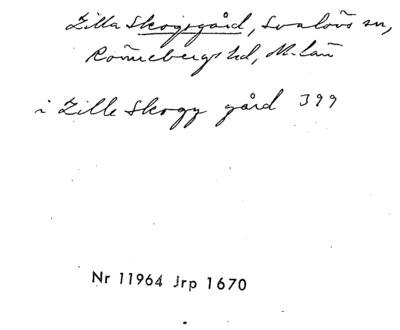 Zilla Skogsgård, Svalövs sn,
Rönnebergs hd, M-län
i Zille Skogz gård 399
Nr 11964 Jrp 1670